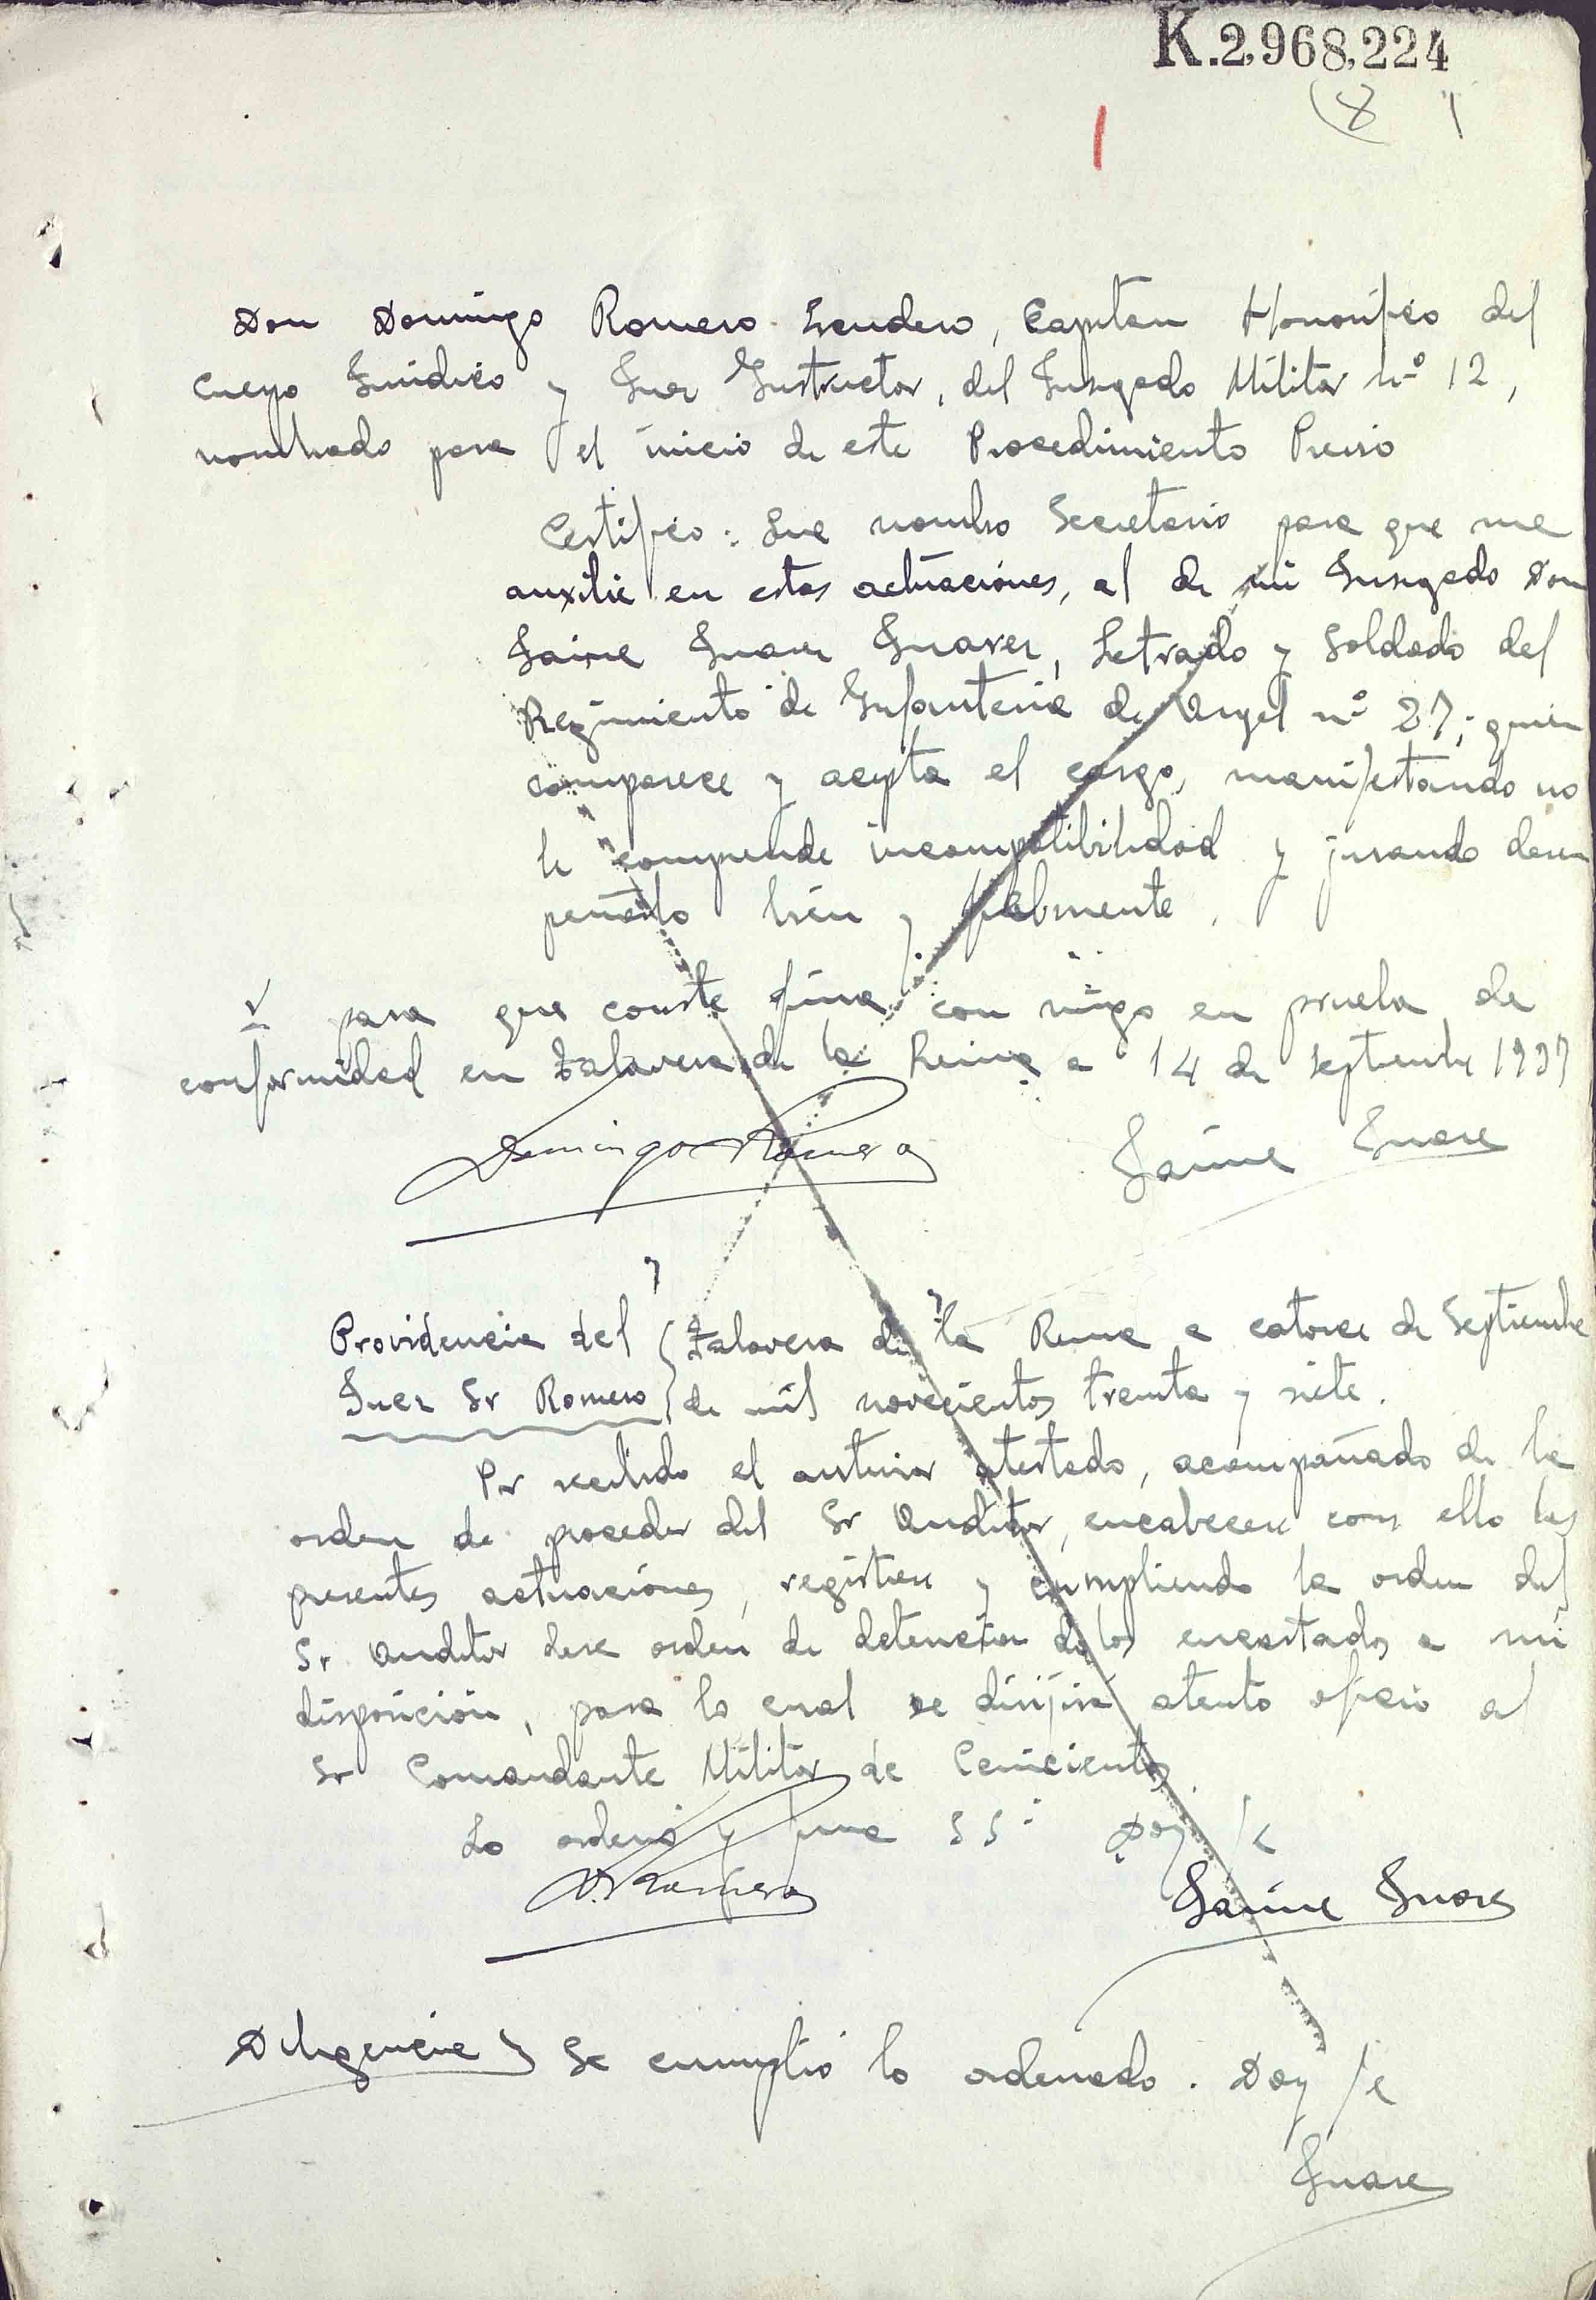 K.2,968,224
8
Don Domingo Romero Sendero, Capitan Honorífico del
Cuerpo Jurídico y Juez Instructor, del Juzgado Militar nº 12,
nombrado para el inicio de este Procedimiento Previo
Certifico: Que nombro Secretario para que me
auxilie en estas actuaciones, al de mi Juzgado Don
Jaime Suarez Suarez, Letrado y Soldado del
Regimiento de Infanteria de Argel nº 27; quien
comparece y acepta el cargo, manifestando no
le comprende incompatibilidad y jurando desem
peñarlo bién y fielmente.
Y para que conste firma conmigo en prueba de
conformidad en Talavera de la Reina a 14 de septiembre 1937
Domingo Romero
Jaime Suare
Providencia del } Talavera de la Reina a catorce de Septiembre
Juez Sr Romero } de mil novecientos treinta y siete.
Por recibido el anterior atestado, acompañado de la
orden de proceder del Sr Auditor, encabecese con ello las
presentes actuaciones, registrese y cumpliendo la orden del
Sr. Auditor dese orden de detención de los encartados a mi
disposición, para lo cual se dirijirá atento oficio al
Sr Comandante Militar de Cenicientos.
Lo ordenó y firma SSª Doy fe
D. Romero
Jaime Suares
Diligencia } Se cumplió lo ordenado. Doy fe
Suare